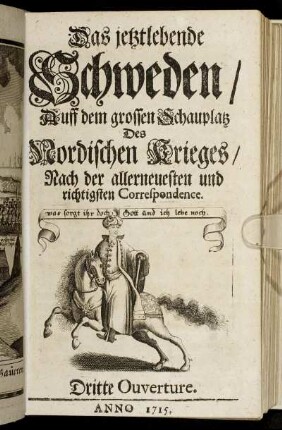 Das jetztlebende
Schweden/
Auff dem grossen Schauplatz
Des
Nordischen Krieges/
Nach der allerneuesten und
richtigsten Correspondence.
was sorgt ihr doch Gott und ich lebe noch.
Dritte Ouverture.
ANNO 1715.